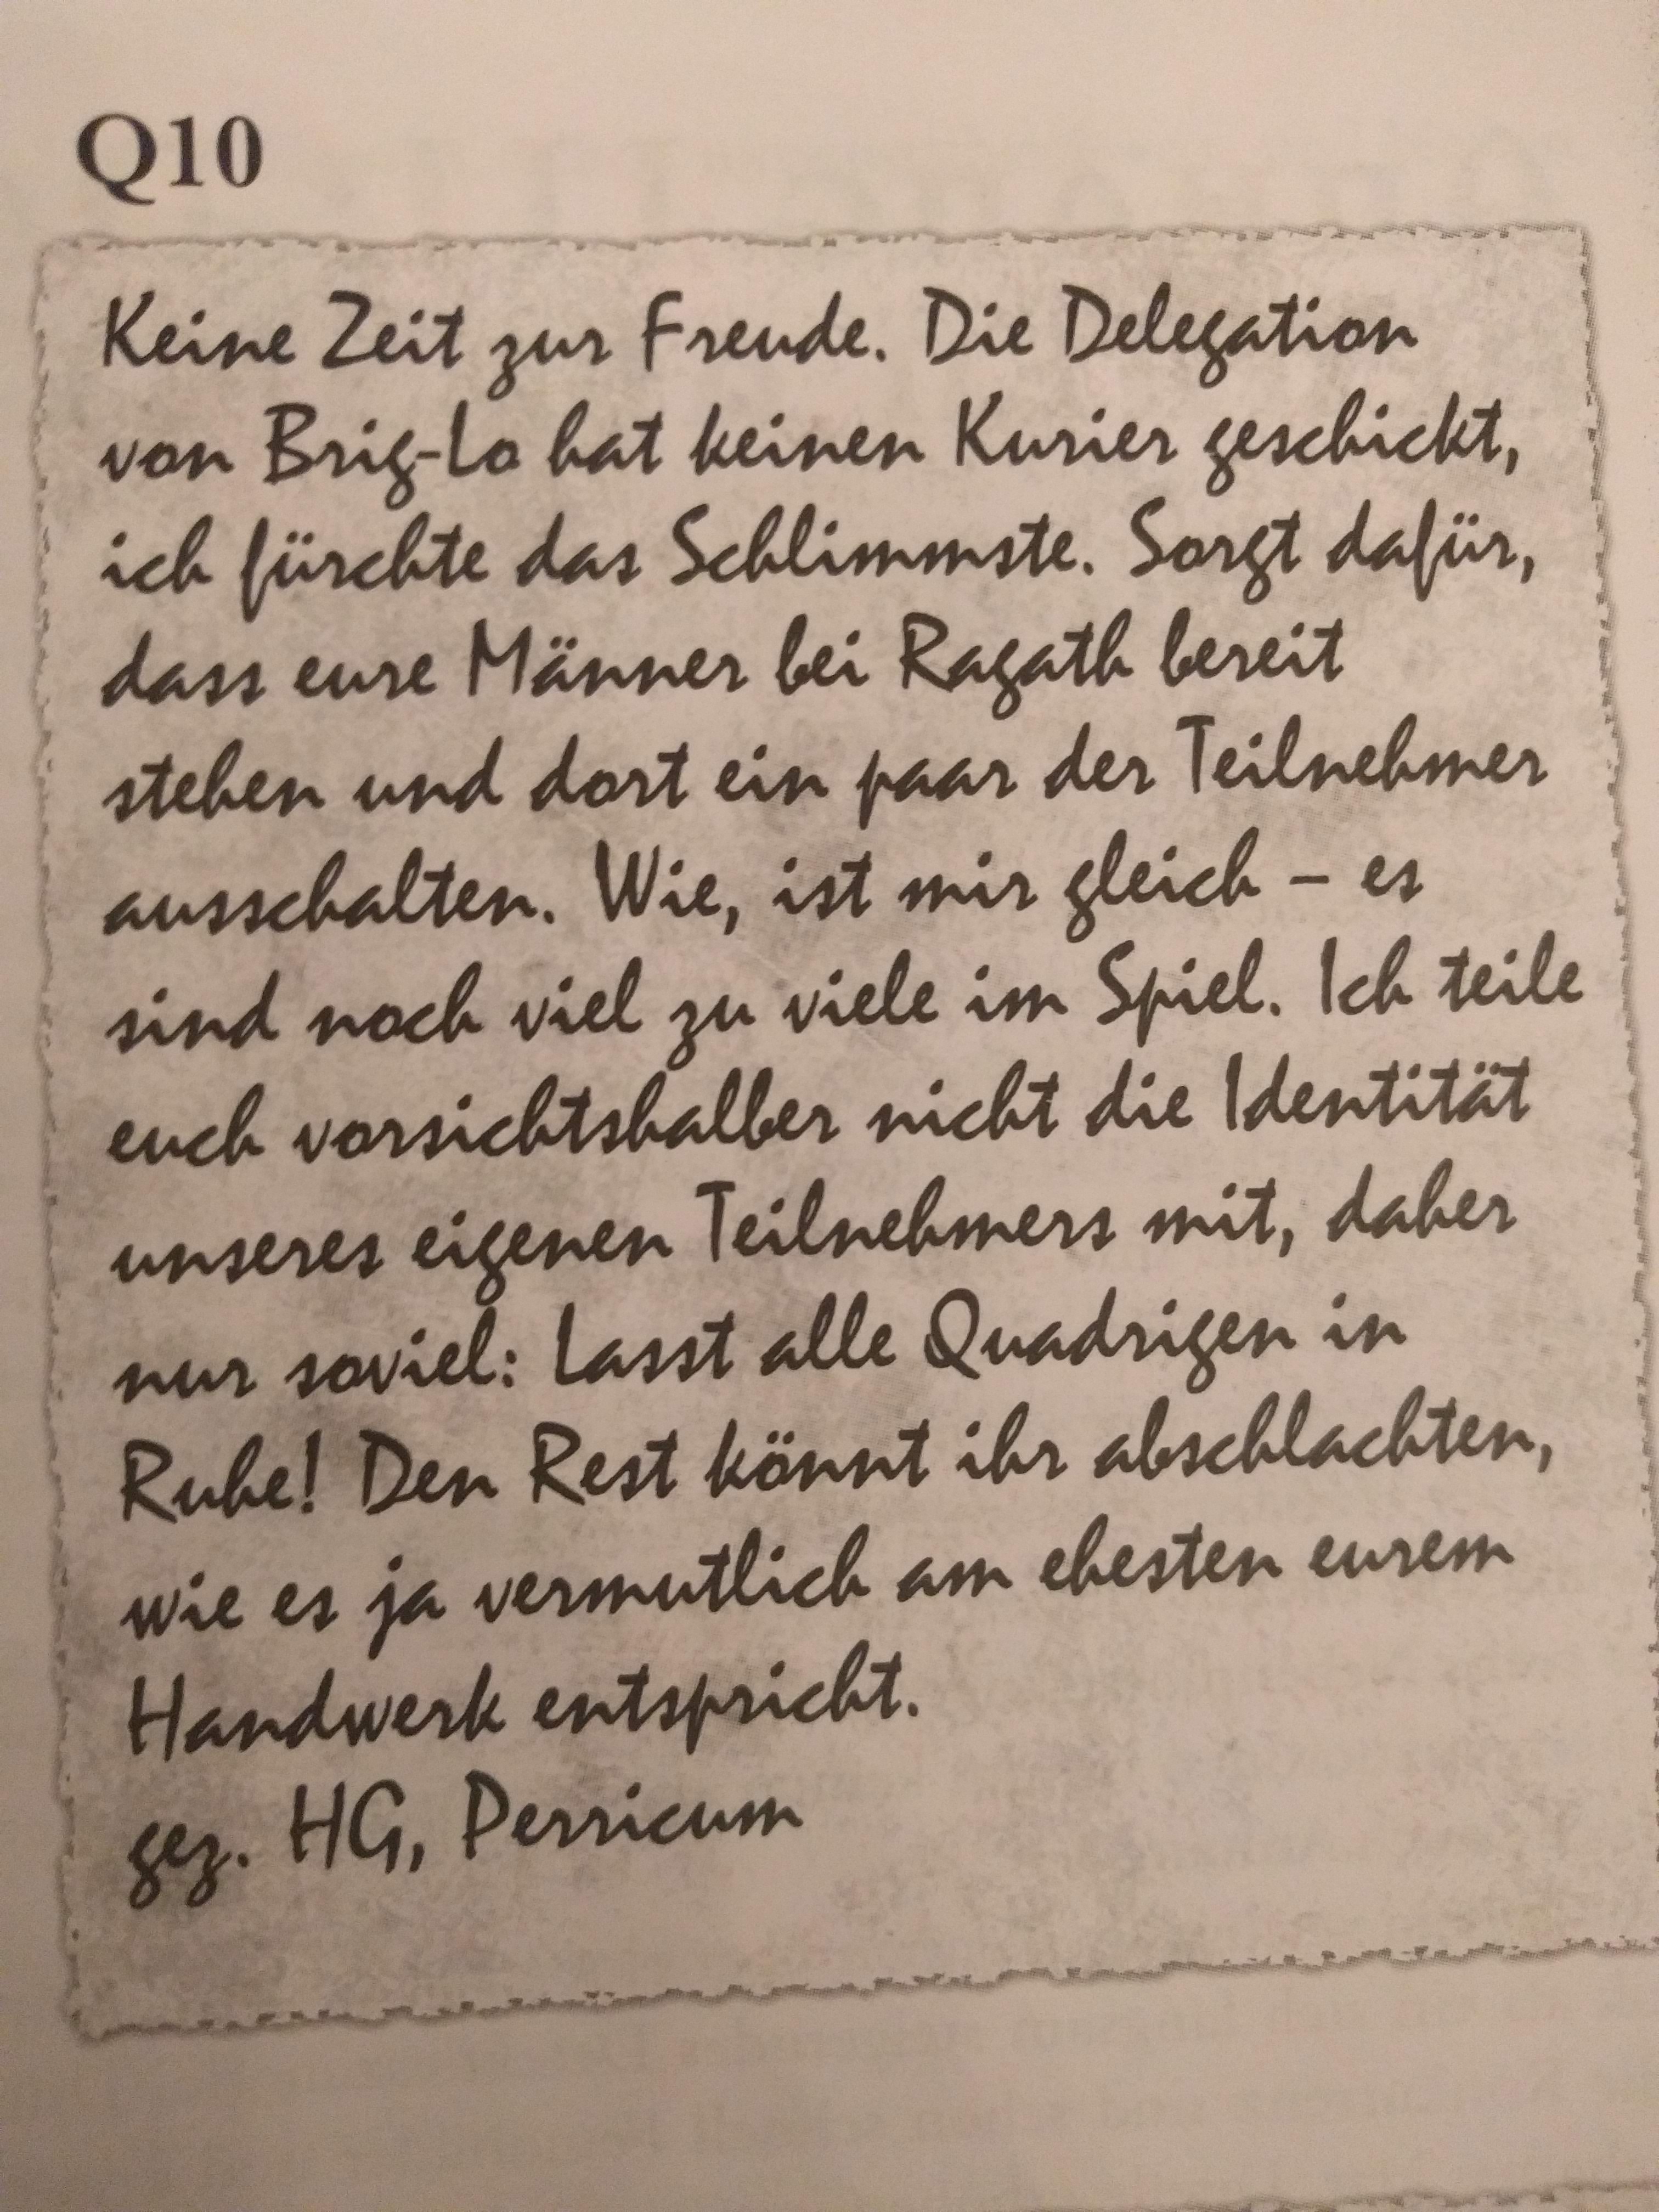 Q10
Keine Zeit zur Freude. Die Delegation
von Brig-Lo hat keinen Kurier geschickt,
ich fürchte das Schlimmste. Sorgt dafür,
dass eure Männer bei Ragath bereit
stehen und dort ein paar der Teilnehmer
ausschalten. Wie, ist mir gleich – es
sind noch viel zu viele im Spiel. Ich teile
euch vorsichtshalber nicht die Identität
unseres eigenen Teilnehmers mit, daher
nur soviel: Lasst alle Quadrigen in
Ruhe! Den Rest könnt ihr abschlachten,
wie es ja vermutlich am ehesten eurem
Handwerk entspricht.
gez. HG, Perricum